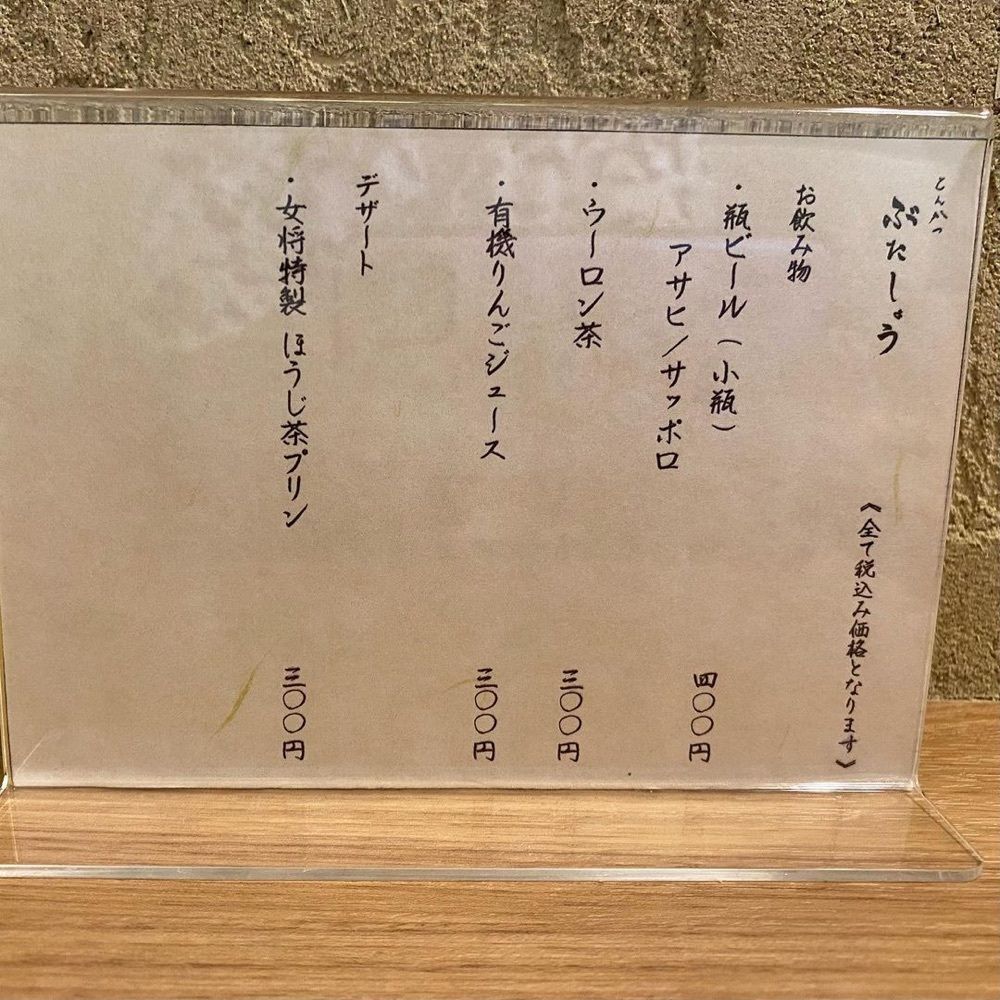 とんかつ
ぶたしょう
《全て税込み価格となります》
お飲み物
・瓶ビール（小瓶）
アサヒ／サッポロ
四〇〇円
・ウーロン茶
三〇〇円
・有機りんごジュース
三〇〇円
デザート
・女将特製 ほうじ茶プリン
三〇〇円